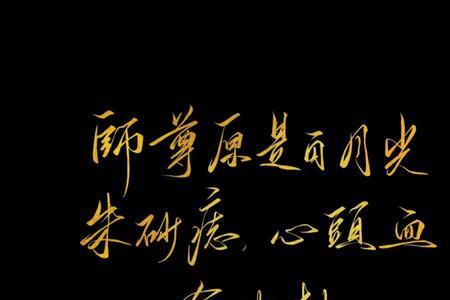 師尊原是百月光
朱砂痣,心頭血